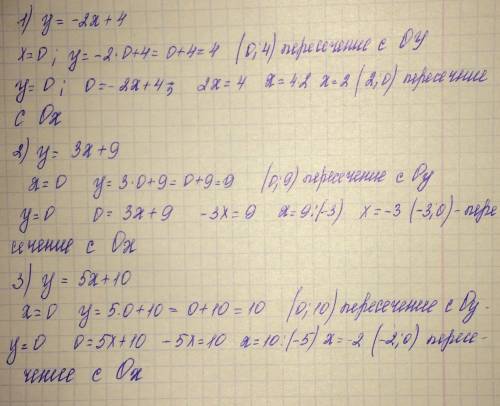 1) y = -2x+4
x=0; y=-2·0+4=0+4=4 (0;4) пересечение с Oy
y=0; 0=-2x+4; 2x=4 x=4:2 x=2 (2;0) пересечение
с Ox
2) y= 3x+9
x=0 y=3·0+9=0+9=9 (0;9) пересечение с Oy
y=0 0=3x+9 -3x=9 x=9:(-3) x=-3 (-3;0)-пере
сечение с Ox
3) y=5x+10
x=0 y=5·0+10=0+10=10 (0;10) пересечение с Oy.
y=0 0=5x+10 -5x=10 x=10:(-5) x=-2 (-2;0) пересе-
чение с Ox